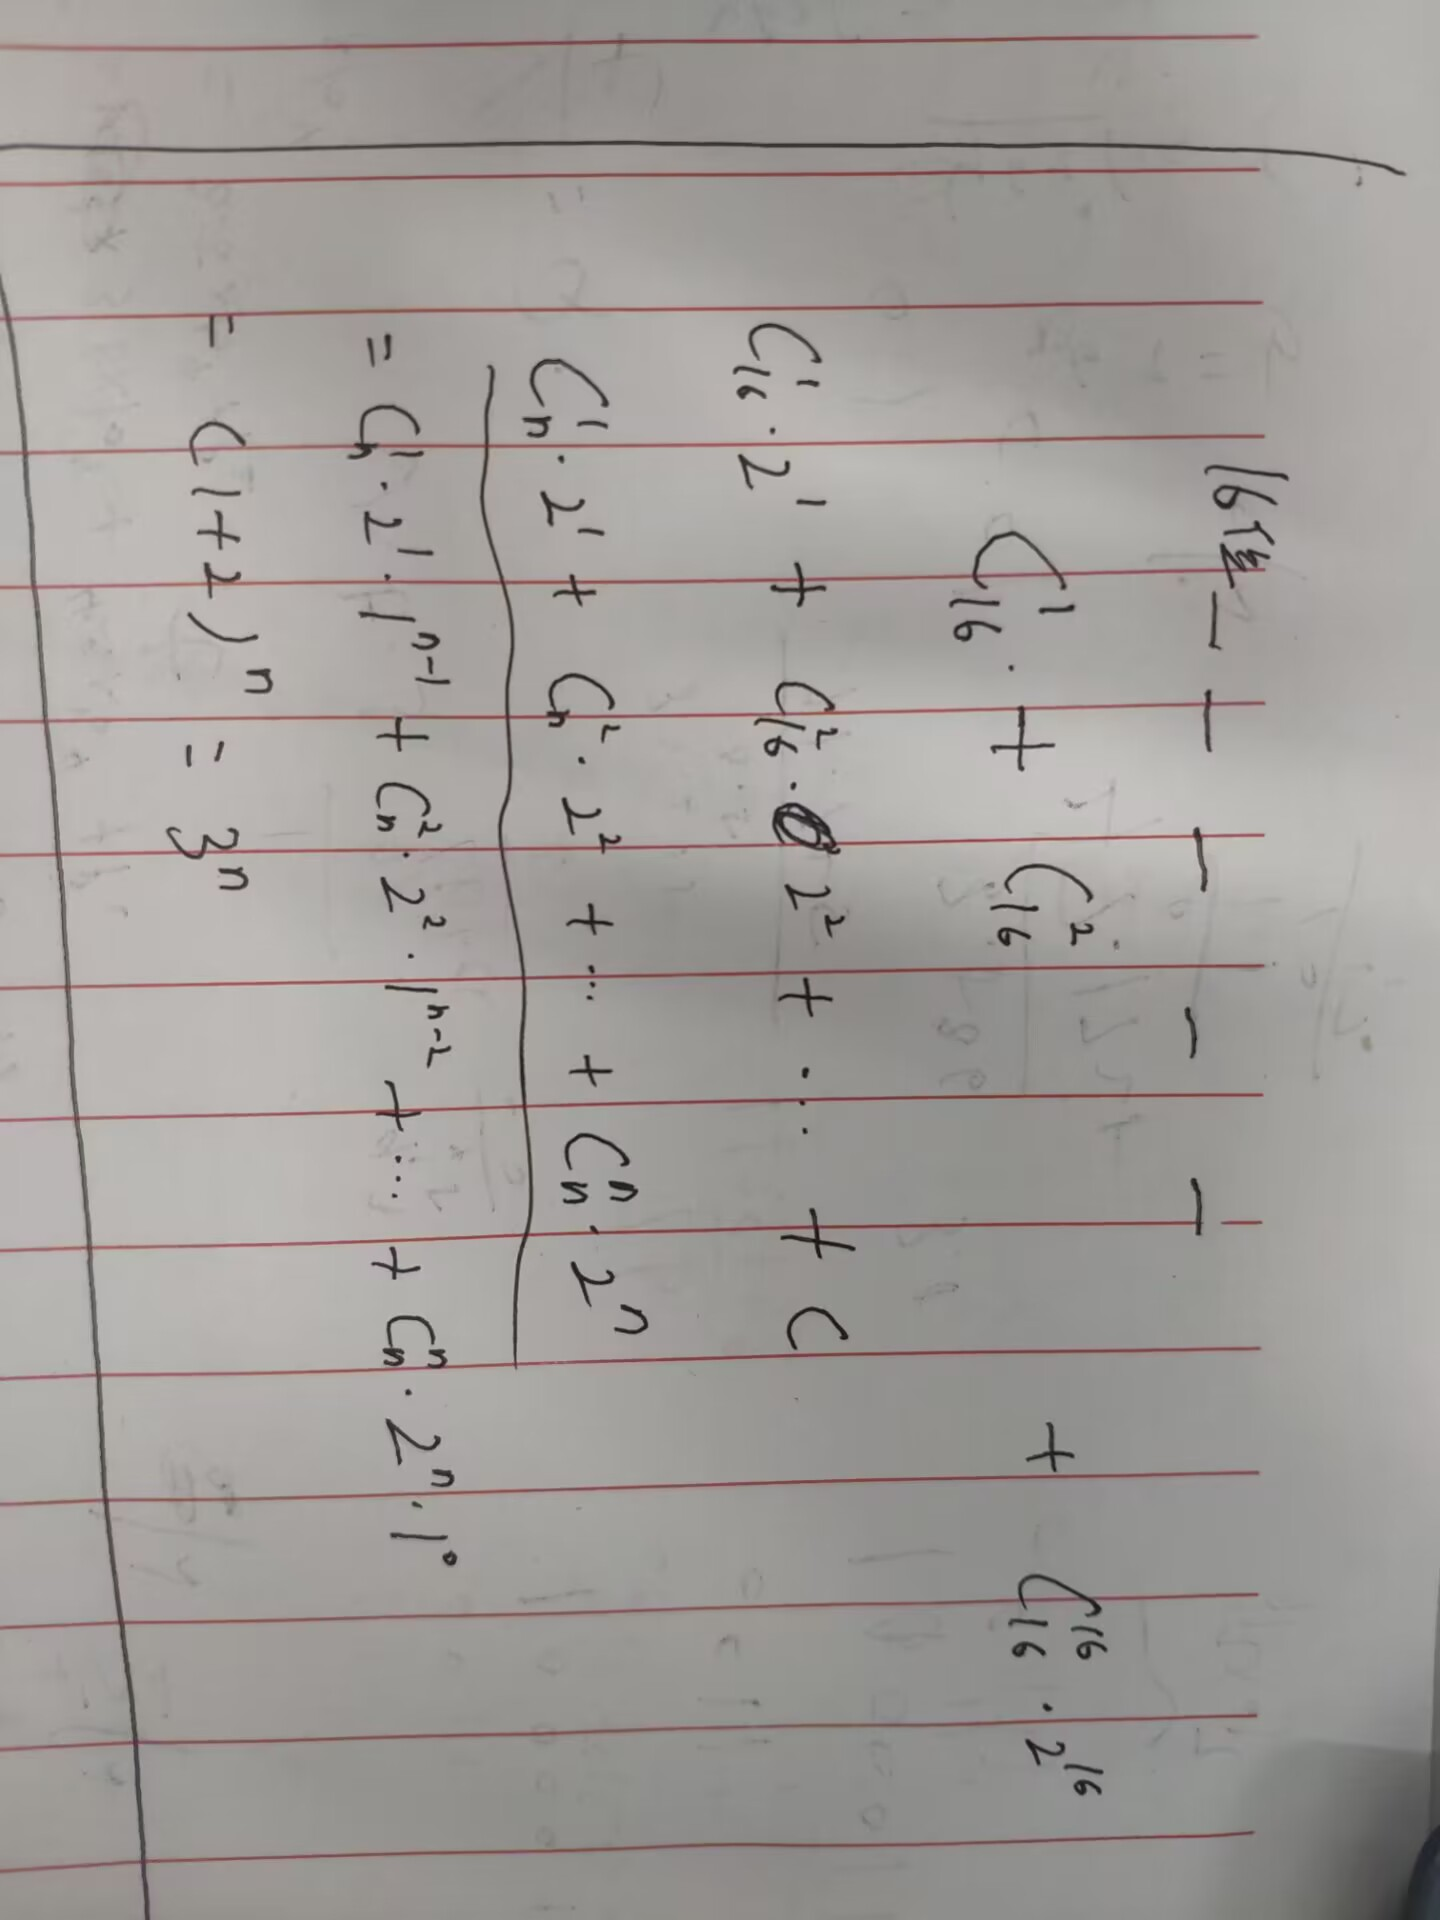 16位 — — — — —
C₁₆¹ · + C₁₆² + C₁₆¹⁶ · 2¹⁶
C₁₆¹ · 2¹ + C₁₆² · 2² + ... + C
Cₙ¹ · 2¹ + Cₙ² · 2² + ... + Cₙⁿ · 2ⁿ
= Cₙ¹ · 2¹ · 1ⁿ⁻¹ + Cₙ² · 2² · 1ⁿ⁻² + ... + Cₙⁿ · 2ⁿ · 1⁰
= (1+2)ⁿ = 3ⁿ